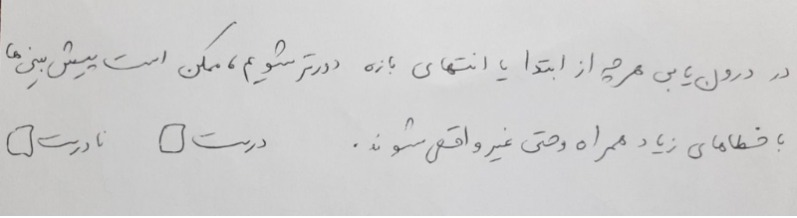 در درون یابی هرچه از ابتدا یا انتهای بازه دورتر شویم، ممکن است پیش بینی‌ها
با خطاهای زیاد همراه وحتی غیر واقعی شوند. درست □ نادرست □